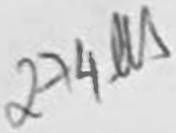 274 lbs